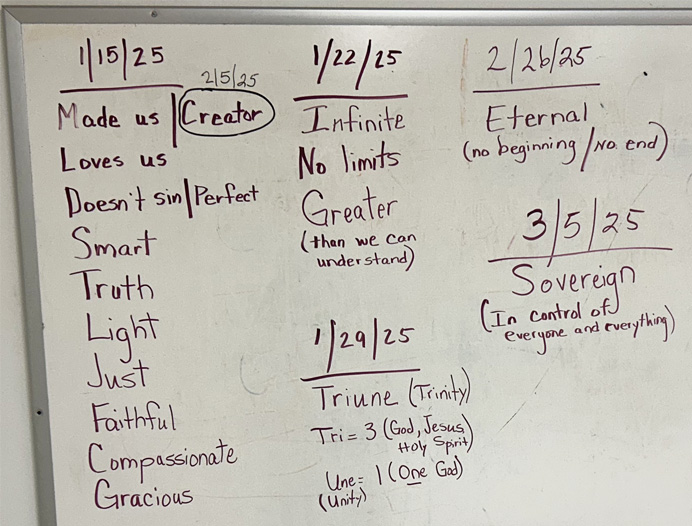 1/15/25
2/5/25
Made us | Creator
Loves us
Doesn't sin | Perfect
Smart
Truth
Light
Just
Faithful
Compassionate
Gracious
1/22/25
Infinite
No limits
Greater
(than we can
understand)
1/29/25
Triune (Trinity)
Tri = 3 (God, Jesus,
Holy Spirit)
Une = 1 (One God)
(Unity)
2/26/25
Eternal
(no beginning / No end)
3/5/25
Sovereign
(In control of
everyone and everything)